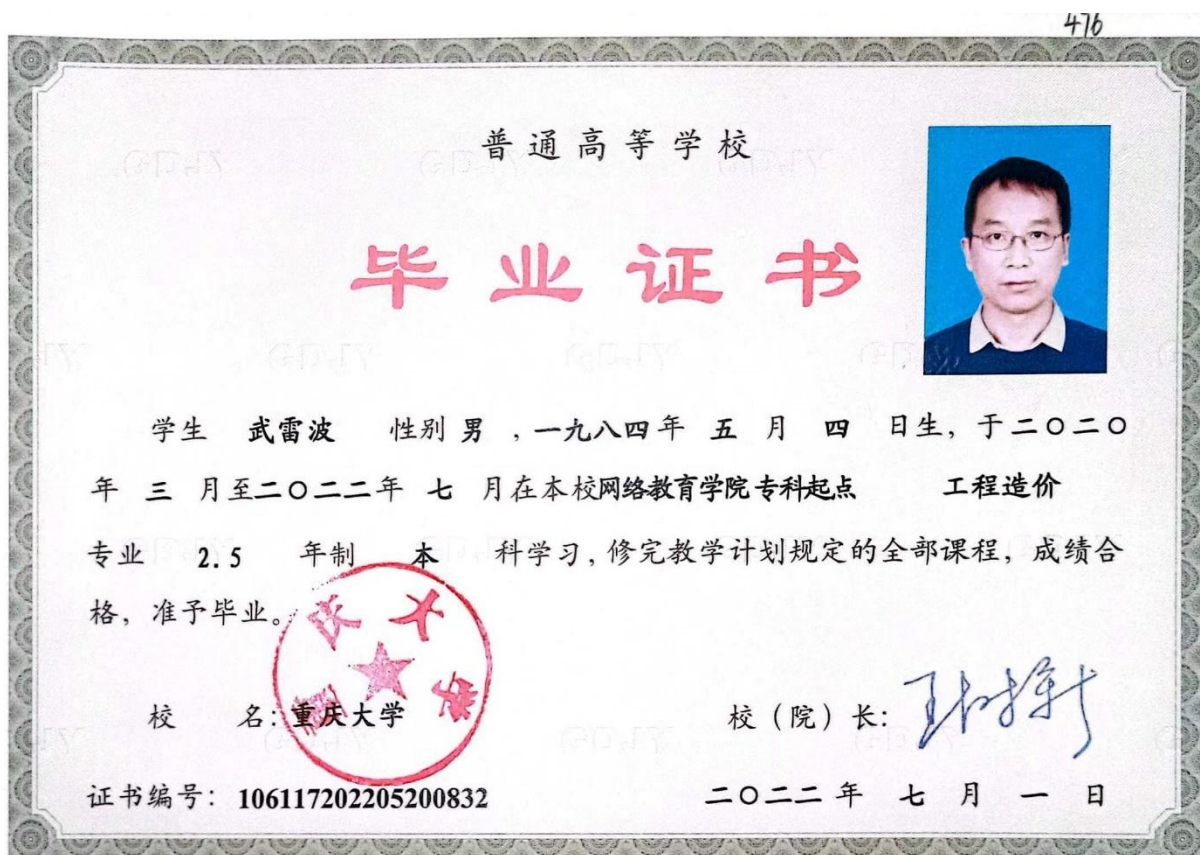 476
普通高等学校
毕业证书
学生 武雷波 性别 男 ,一九八四年 五 月 四 日生, 于二〇二〇
年 三 月至二〇二二年 七 月在本校网络教育学院专科起点 工程造价
专业 2.5 年制 本 科学习, 修完教学计划规定的全部课程, 成绩合
格, 准予毕业。
重庆大学
校 名: 重庆大学 校（院）长: 王树新
证书编号: 106117202205200832 二〇二二年 七 月 一 日